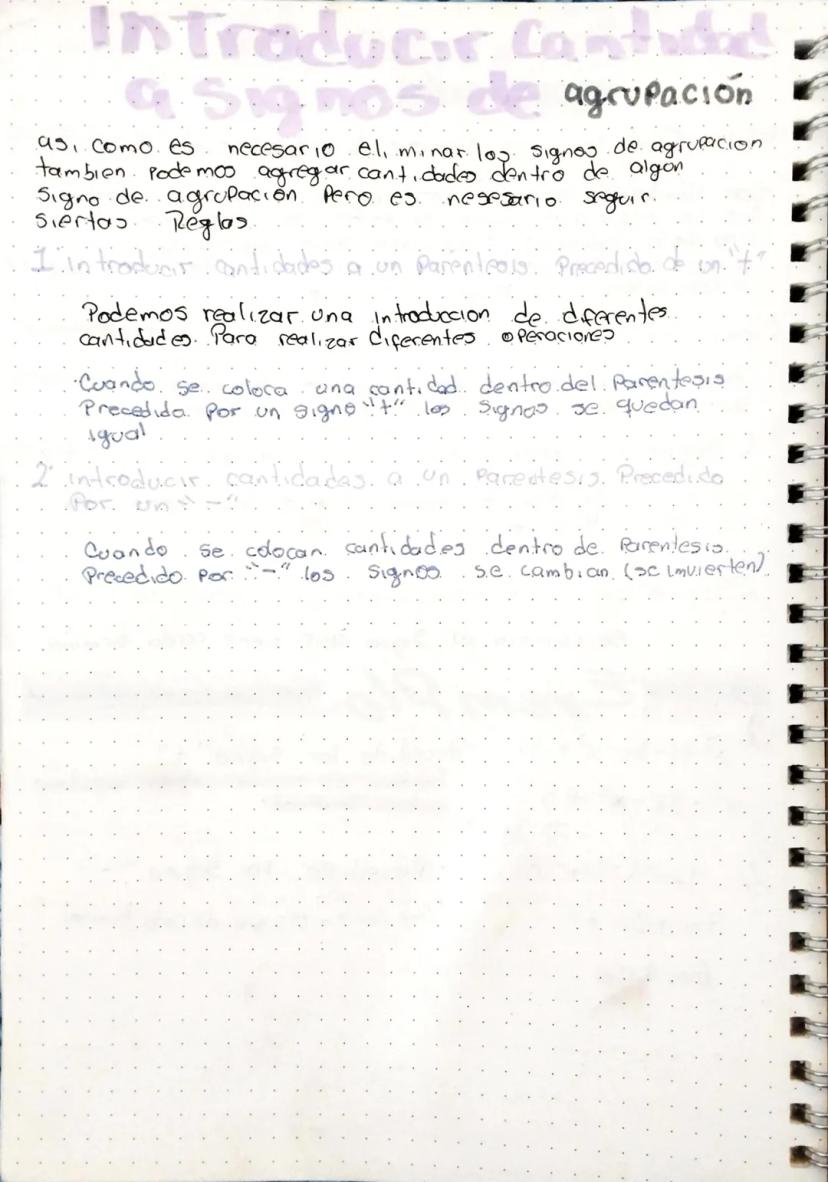 Introducir Cantidad
a Signos de agrupación
así como es necesario eliminar los signos de agrupacion
tambien Podemos agregar cantidades dentro de algun
signo de agrupación Pero es nesesario seguir
siertas Reglas
1 introducir cantidades a un Parentesis Precedido de un "+"
Podemos realizar una introduccion de diferentes
cantidades Para realizar diferentes operaciones
Cuando se coloca una cantidad dentro del Parentesis
Precedida Por un signo "+" los signos se quedan
igual
2 introducir cantidades a un Parentesis Precedido
Por un "-"
Cuando se colocan cantidades dentro de Parentesis
Precedido Por "-" los signos se cambian (se imvierten)